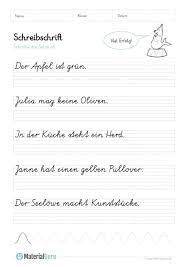 Name: Klasse: Datum:
Schreibschrift
Schreibe die Sätze ab.
Viel Erfolg!
Der Apfel ist grün.
Julia mag keine Oliven.
In der Küche steht ein Herd.
Janne hat einen gelben Pullover.
Der Seelöwe macht Kunststücke.
Material